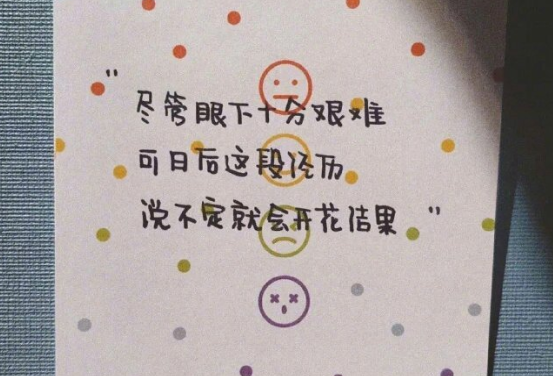 "尽管眼下十分艰难
可日后这段经历
说不定就会开花结果"